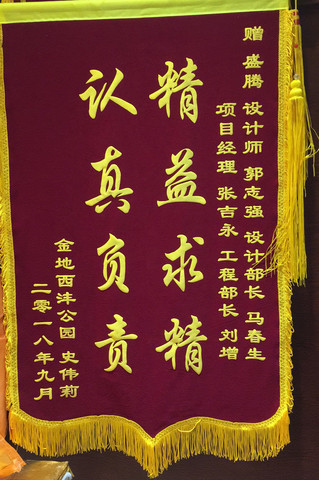 赠 盛腾 设计师 郭志强 设计部长 马春生
项目经理 张吉永 工程部长 刘增
精益求精
认真负责
金地西沣公园 史伟莉
二零一八年九月